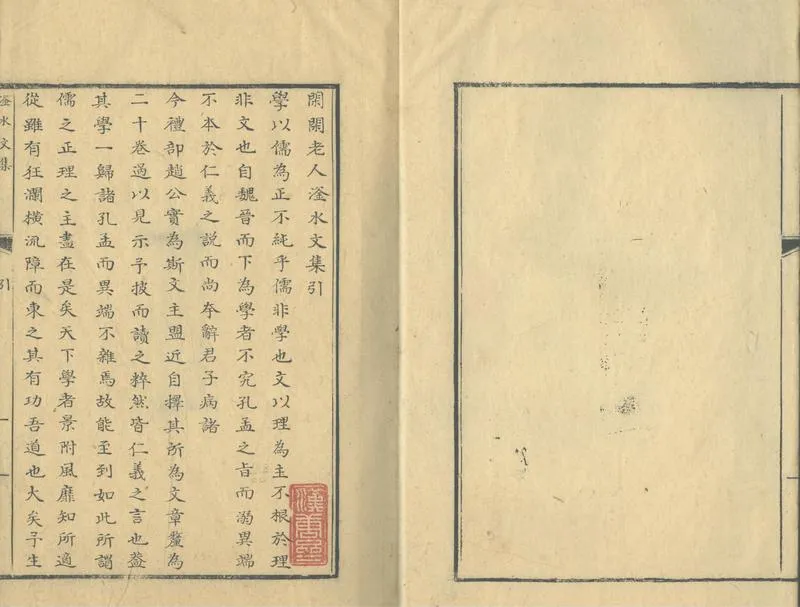 閑閑老人滏水文集引
學以儒為正不純乎儒非學也文以理為主不根於理
非文也自魏晉而下為學者不究孔孟之旨而溺異端
不本於仁義之說而尚夸辭君子病諸
今禮部趙公實為斯文主盟近自擇其所為文章釐為
二十卷過以見示予披而讀之粹然皆仁義之言也蓋
其學一歸諸孔孟而異端不雜焉故能至到如此所謂
儒之正理之主盡在是矣天下學者景附風靡知所適
從雖有狂瀾橫流障而東之其有功吾道也大矣予生
滏水文集
引
一